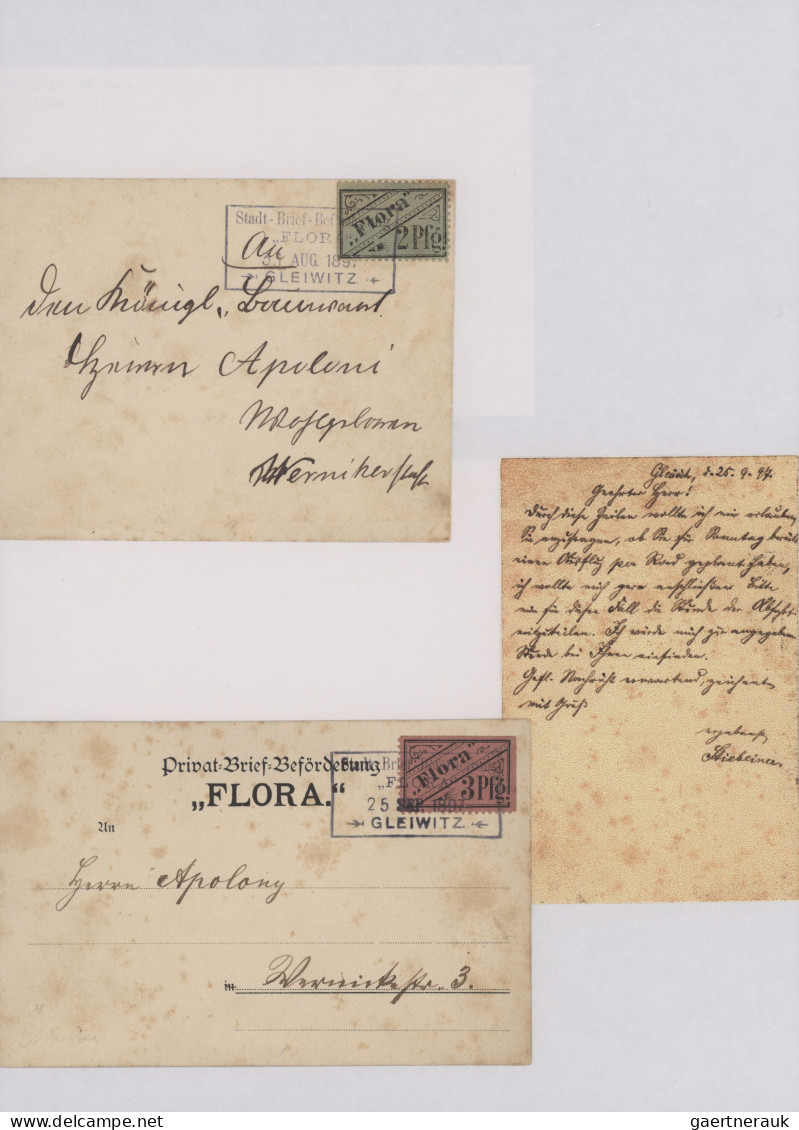 Stadt-Brief-Bef
"FLOR
31 AUG. 189
GLEIWITZ
„Flora"
2 Pfg.
An
den Königl. Baurat
Herrn Apoloni
Wohlgeboren
Wernikerstraße
Gleiwitz, d. 25. 9. 97.
Geehrter Herr!
Durch diese Zeilen wollte ich mir erlauben,
Sie anzufragen, ob Sie für Sonntag
einen Ausflug per Rad geplant haben,
ich wollte mich gern anschließen. Bitte
mir für diesen Fall die Stunde der Abfahrt
mitzuteilen. Ich würde mich zur angegeben
Stunde bei Ihnen einfinden.
Gefl. Nachricht erwartend, zeichnet
mit Gruß
ergebenst
Privat-Brief-Beförderung
„FLORA."
Stadt-Brie
"F
25 SEP. 1897
GLEIWITZ
„Flora"
3 Pfg.
An
Herrn Apolony
in Wernickestr. 3.
gaertnerauk